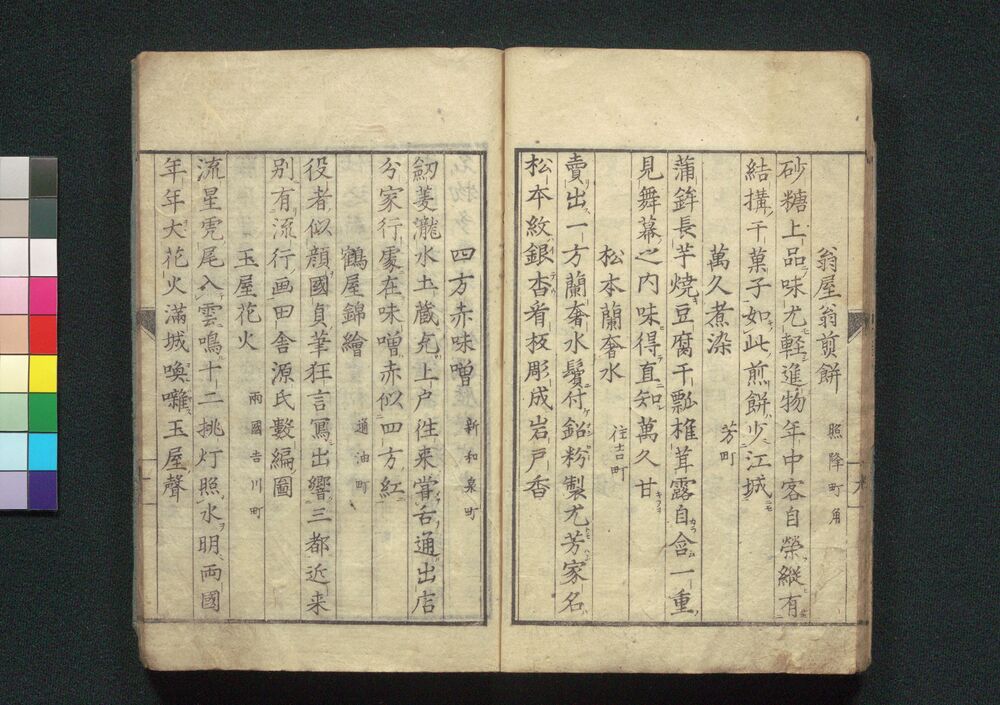 翁屋翁煎餅 照降町角
砂糖上品味尤軽進物年中客自榮縱有
結搆干菓子如此煎餅少江城
萬久煮染 芳町
蒲鉾長芋焼豆腐干瓢椎茸露自含一重
見舞幕之内味得直知萬久甘
松本蘭奢水 住吉町
賣出一方蘭奢水鬢付鉛粉製尤芳家名
松本紋銀杏看板彫成岩戸香
四方赤味噌 新和泉町
劔菱瀧水土蔵充上戸徃来嘗舌通出店
分家行處在味噌赤似四方紅
鶴屋錦繪 通油町
役者似顔國貞筆狂言寫出響三都近来
别有流行画田舎源氏數編圖
玉屋花火 兩國吉川町
流星乕尾入雲鳴十二挑灯照水明両國
年年大花火滿城喚囃玉屋聲